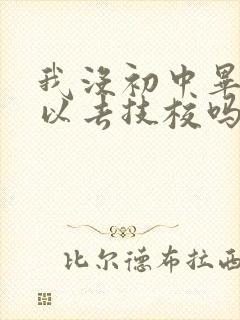 我没初中畢
以去技校吗
比尔德布拉西